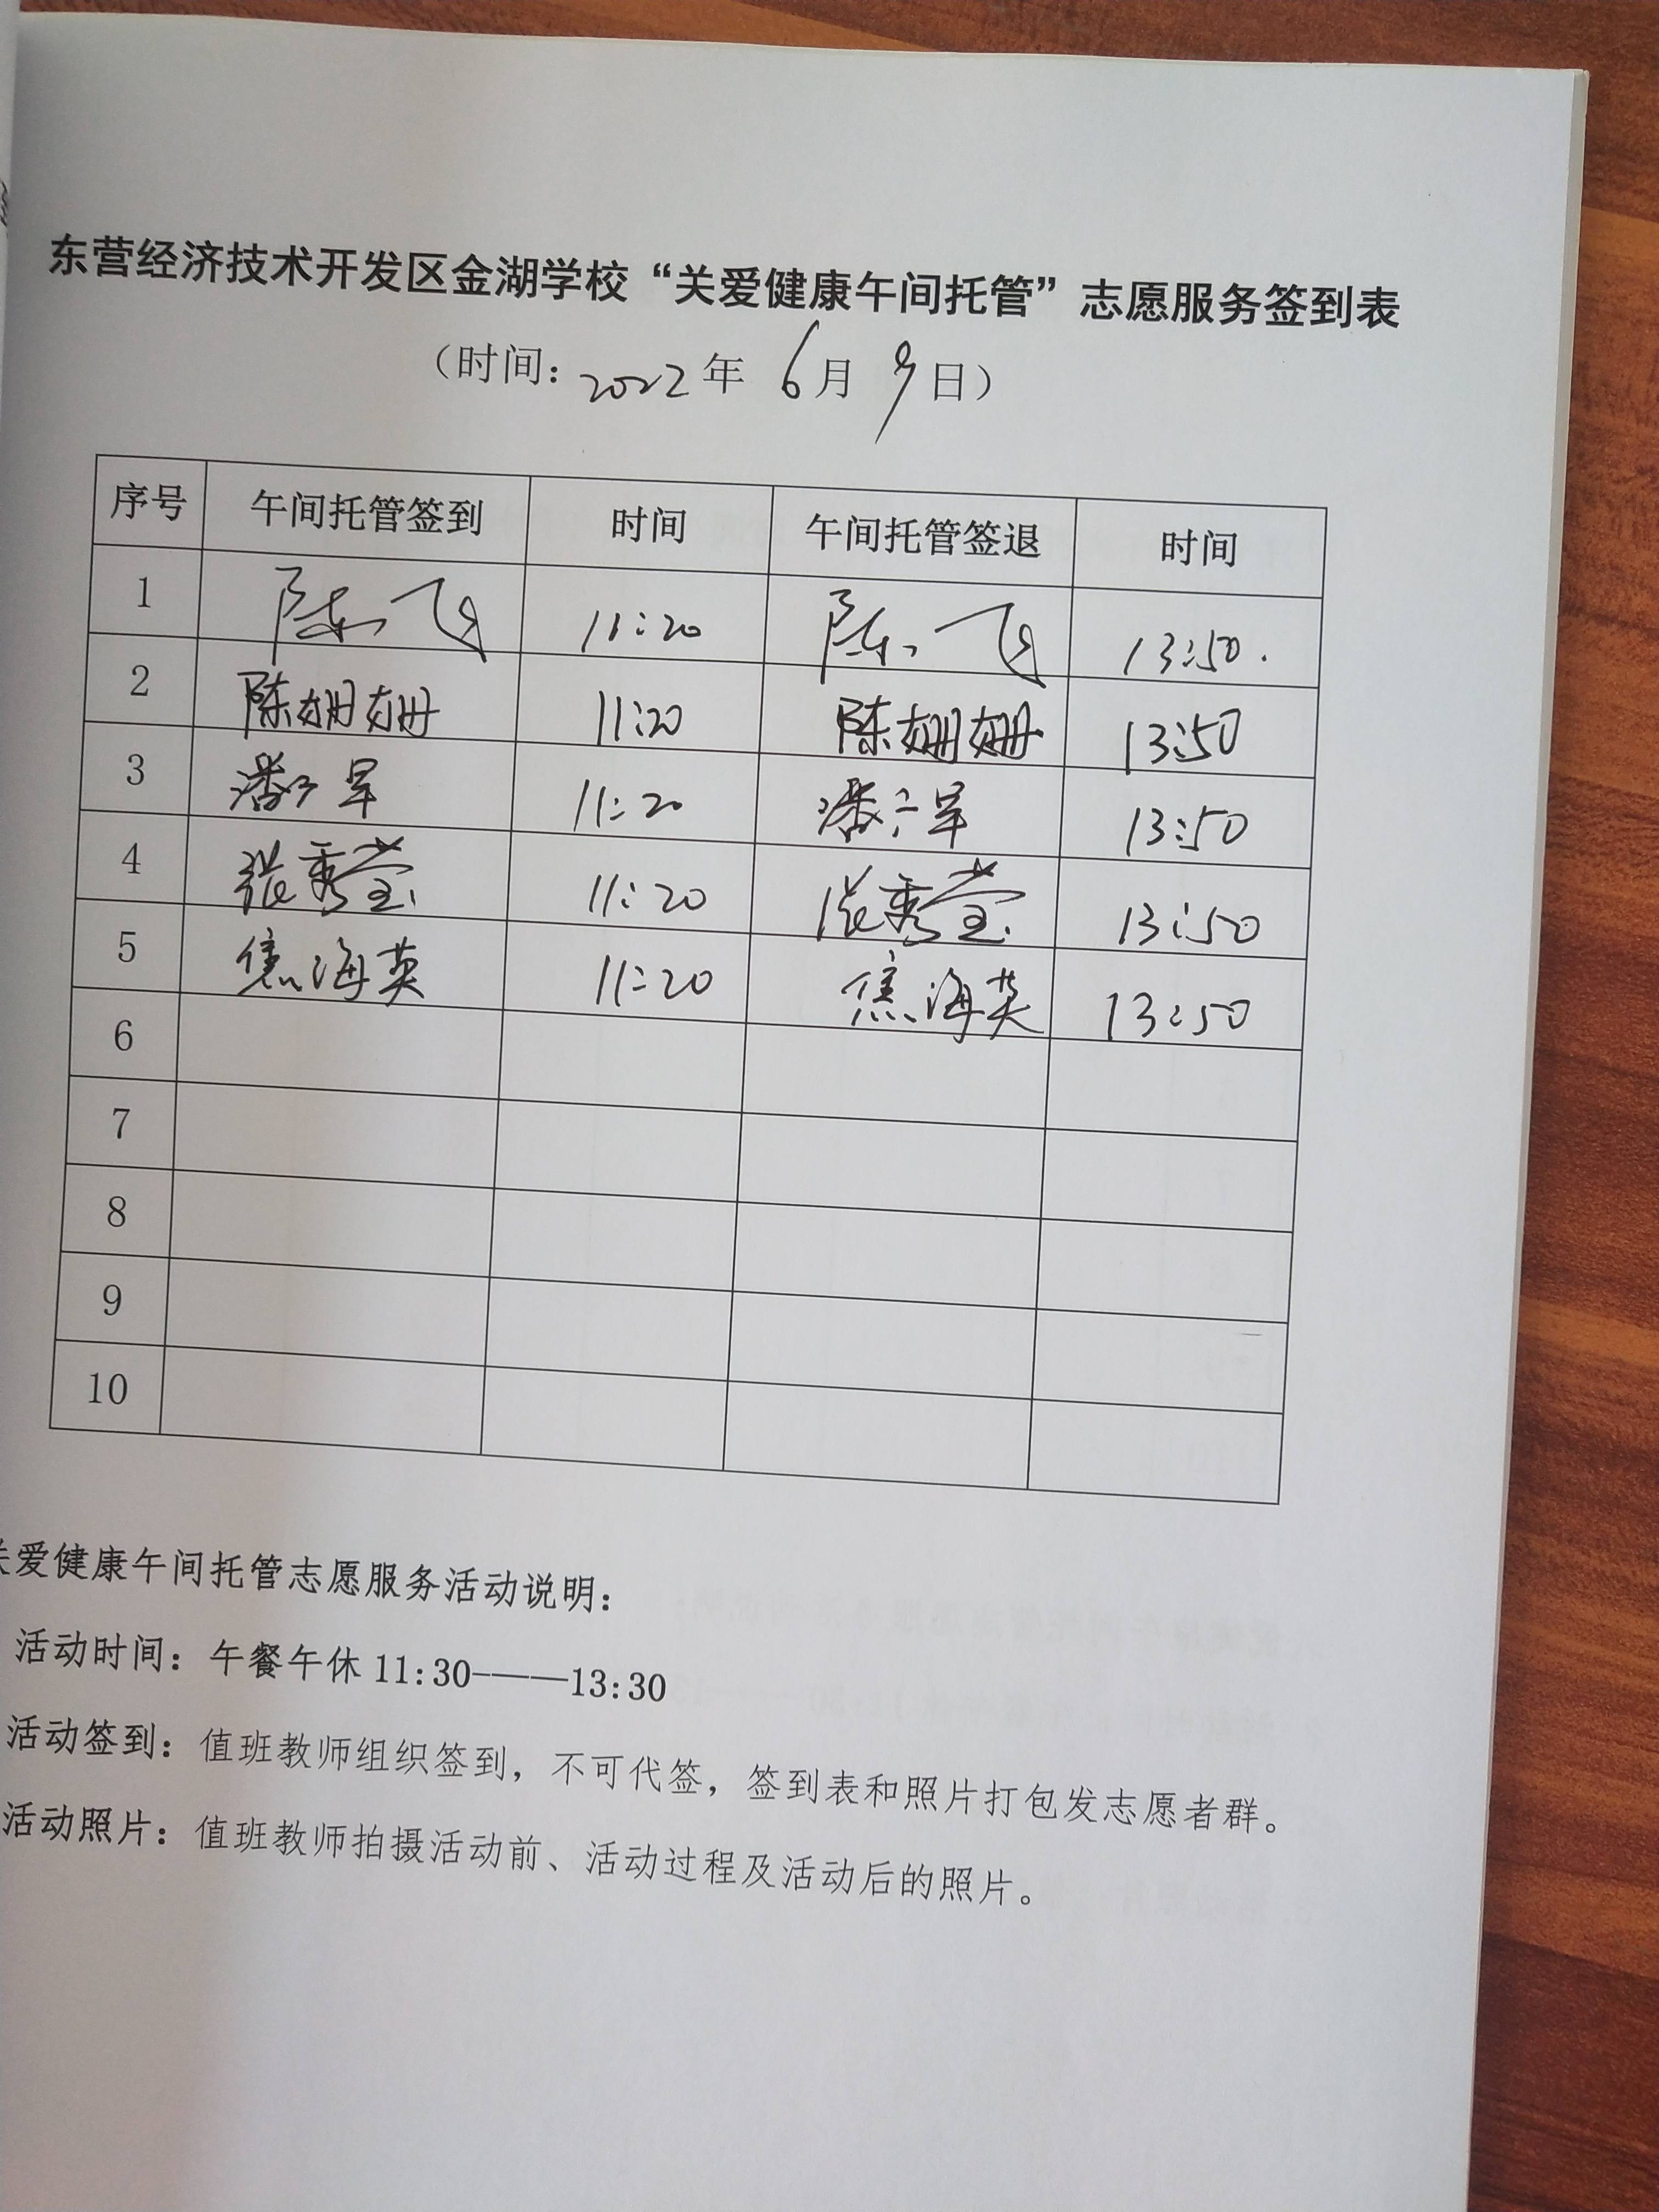 东营经济技术开发区金湖学校“关爱健康午间托管”志愿服务签到表
（时间：2022年 6月 9日）
序号 午间托管签到 时间 午间托管签退 时间
1 陈飞 11:20 陈飞 13:50.
2 陈姗姗 11:20 陈姗姗 13:50
3 潘 11:20 潘 13:50
4 张秀莹 11:20 张秀莹 13:50
5 焦海英 11:20 焦海英 13:50
6
7
8
9
10
关爱健康午间托管志愿服务活动说明：
活动时间：午餐午休 11:30-———13:30
活动签到：值班教师组织签到，不可代签，签到表和照片打包发志愿者群。
活动照片：值班教师拍摄活动前、活动过程及活动后的照片。